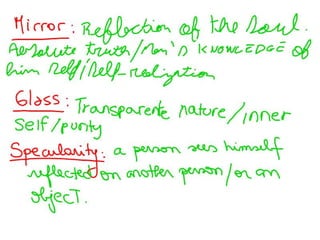 Mirror: Reflection of the soul.
Absolute truth/Man's KNOWLEDGE of
him self/self-realization
Glass: Transparente nature/inner
self/purity
Specularity: a person sees himself
reflected on another person/or an
object.